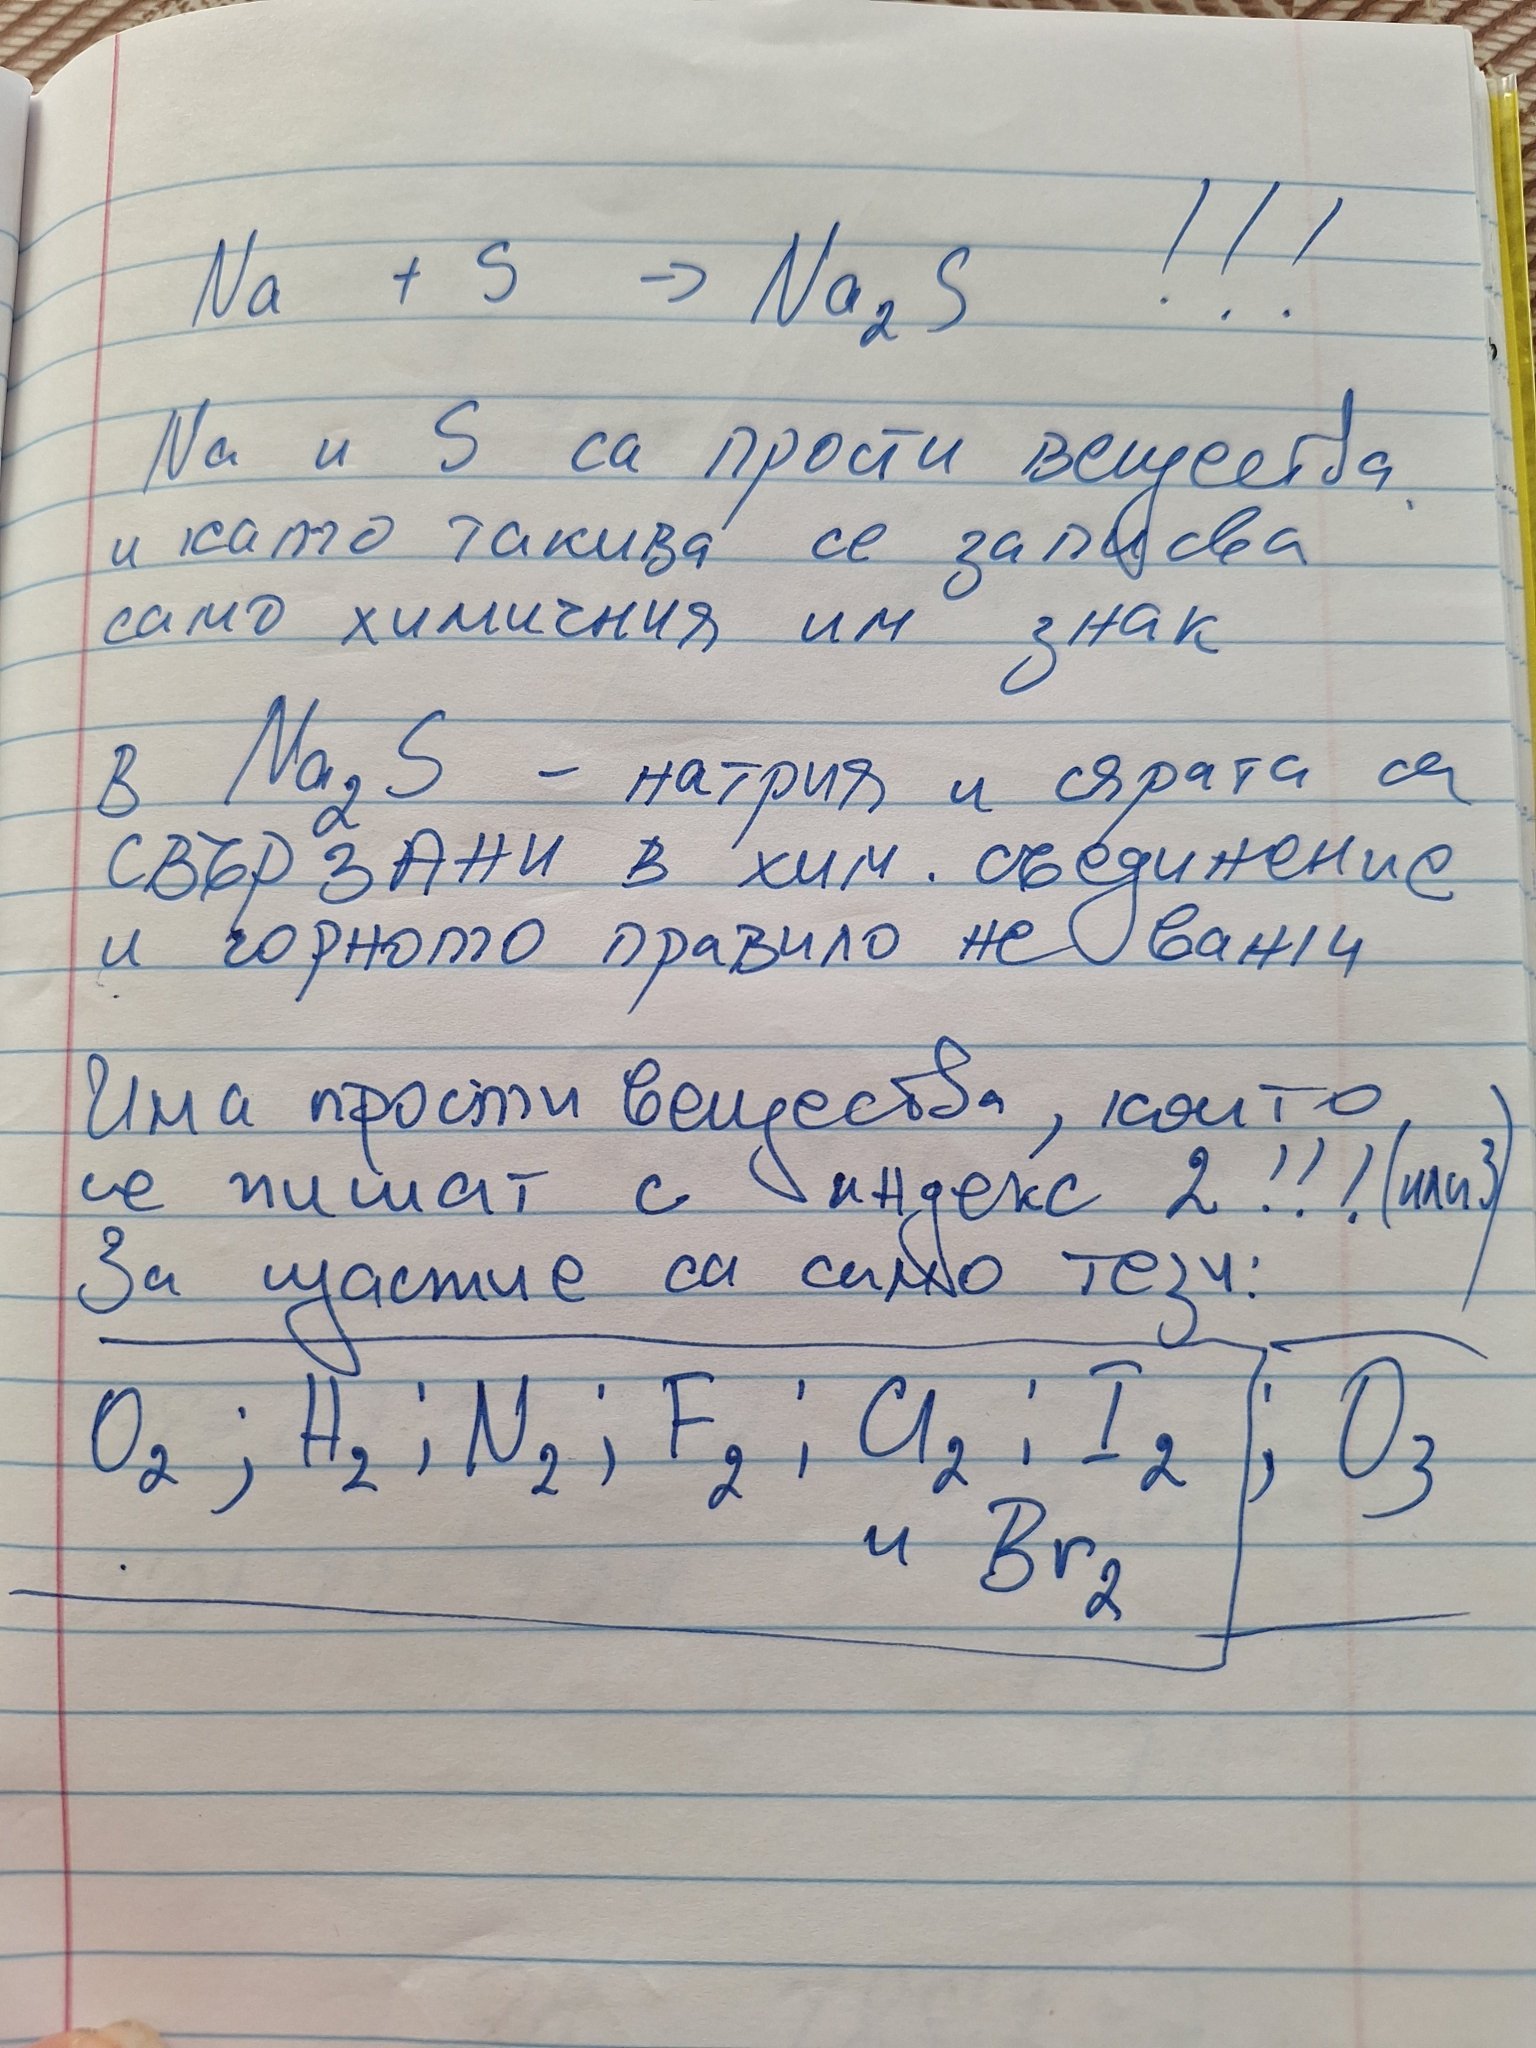 Na + S → Na₂S !!!
Na и S са прости вещества
и като такива се записва
само химичния им знак
В Na₂S - натрия и сярата са
СВЪРЗАНИ в хим. съединение
и горното правило не важи
Има прости вещества, които
се пишат с индекс 2!!! (или 3)
За щастие са само тези:
O₂ ; H₂ ; N₂ ; F₂ ; Cl₂ ; I₂ ; O₃
и Br₂